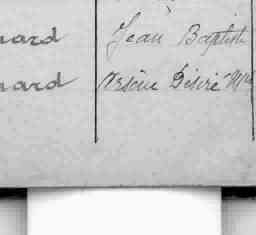 nard Jean Baptiste
nard Arsène Désiré